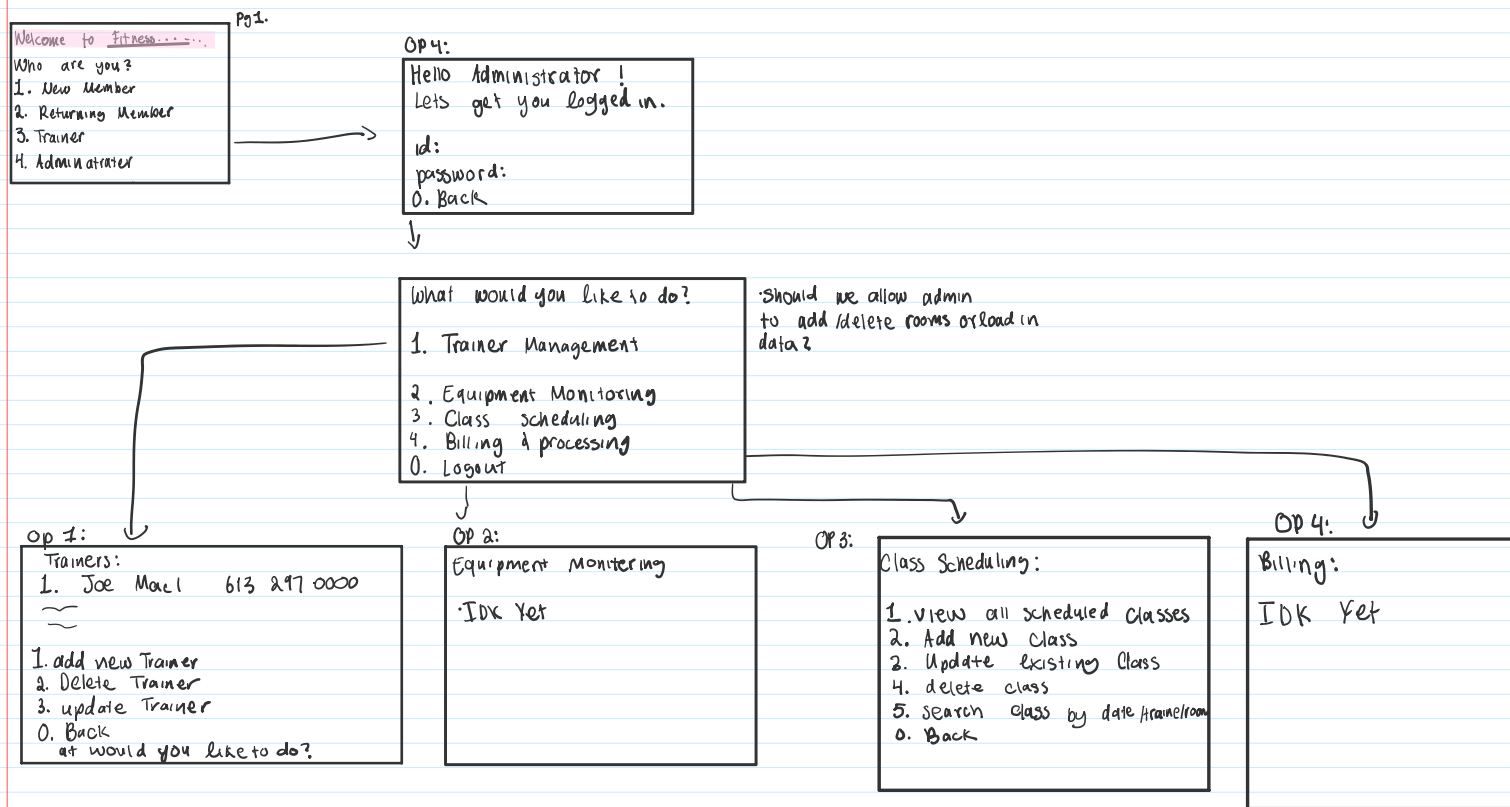 Pg 1.
Welcome to Fitness.......
Who are you?
1. New Member
2. Returning Member
3. Trainer
4. Adminatrater
OP 4:
Hello Administrator !
Lets get you logged in.
id:
password:
0. Back
What would you like to do?
1. Trainer Management
2. Equipment Monitoring
3. Class scheduling
4. Billing & processing
0. Logout
·Should we allow admin
to add/delete rooms or load in
data?
Op 1:
Trainers:
1. Joe Mael 613 297 0000
1. add new Trainer
2. Delete Trainer
3. update Trainer
0. Back
at would you like to do?
OP 2:
Equipment Monitering
·IDK Yet
OP 3:
Class Scheduling:
1. View all scheduled classes
2. Add new class
3. Update existing Class
4. delete class
5. search class by date/traine/room
0. Back
OP 4:
Billing:
IDK Yet